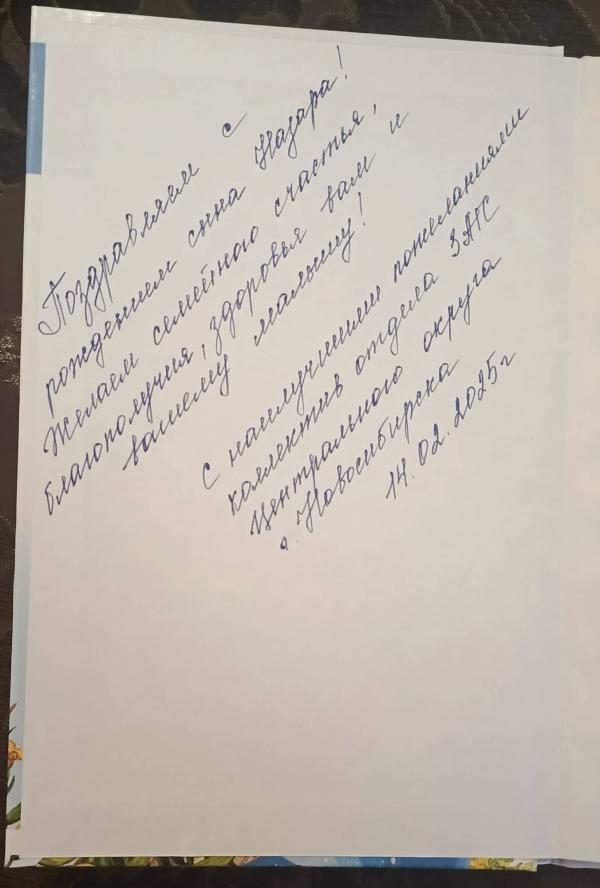 Поздравляем с
рождением сына Назара!
Желаем семейного счастья,
благополучия, здоровья вам и
вашему малышу!
С наилучшими пожеланиями
коллектив отдела ЗАГС
Центрального округа
г. Новосибирска
14.02.2025г